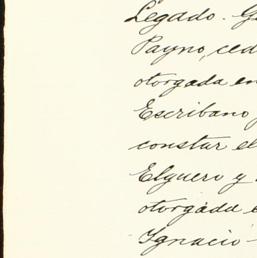 Legado. G
Payno, ced
otorgada en
Escribano
constar el
Elguero y
otorgada
Ignacio